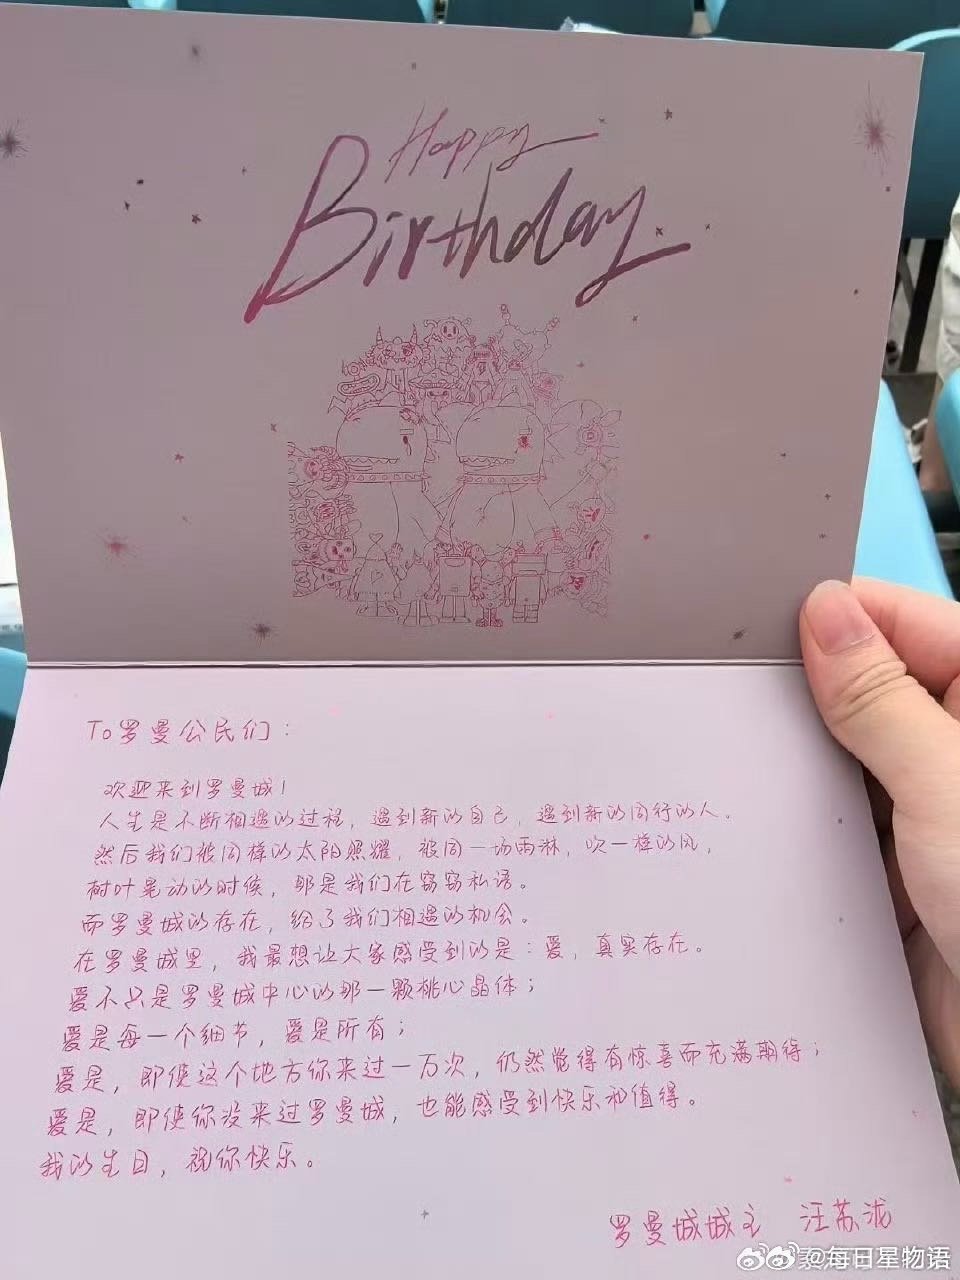 Happy
Birthday
To罗曼公民们：
欢迎来到罗曼城！
人生是不断相遇的过程，遇到新的自己，遇到新的同行的人。
然后我们被同样的太阳照耀，被同一场雨淋，吹一样的风，
树叶晃动的时候，那是我们在窃窃私语。
而罗曼城的存在，给了我们相遇的机会。
在罗曼城里，我最想让大家感受到的是：爱，真实存在。
爱不只是罗曼城中心的那一颗桃心晶体；
爱是每一个细节，爱是所有；
爱是，即使这个地方你来过一万次，仍然觉得有惊喜而充满期待；
爱是，即使你没来过罗曼城，也能感受到快乐和值得。
我的生日，祝你快乐。
罗曼城城主 汪苏泷
@每日星物语